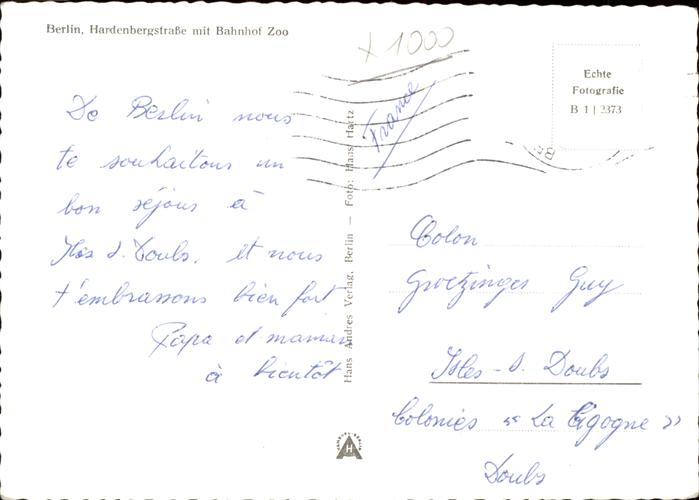 Berlin, Hardenbergstraße mit Bahnhof Zoo
x 1000
Echte
Fotografie
B 1 | 2373
France
De Berlin nous
te souhaitons un
bon séjour à
Isles s. Doubs, et nous
t'embrassons bien fort
Papa et maman
à bientôt
Hans Andres Verlag, Berlin — Foto: Hans Hartz
Colon
Groetzinger Guy
Isles - s. Doubs
Colonies " La Cigogne "
Doubs